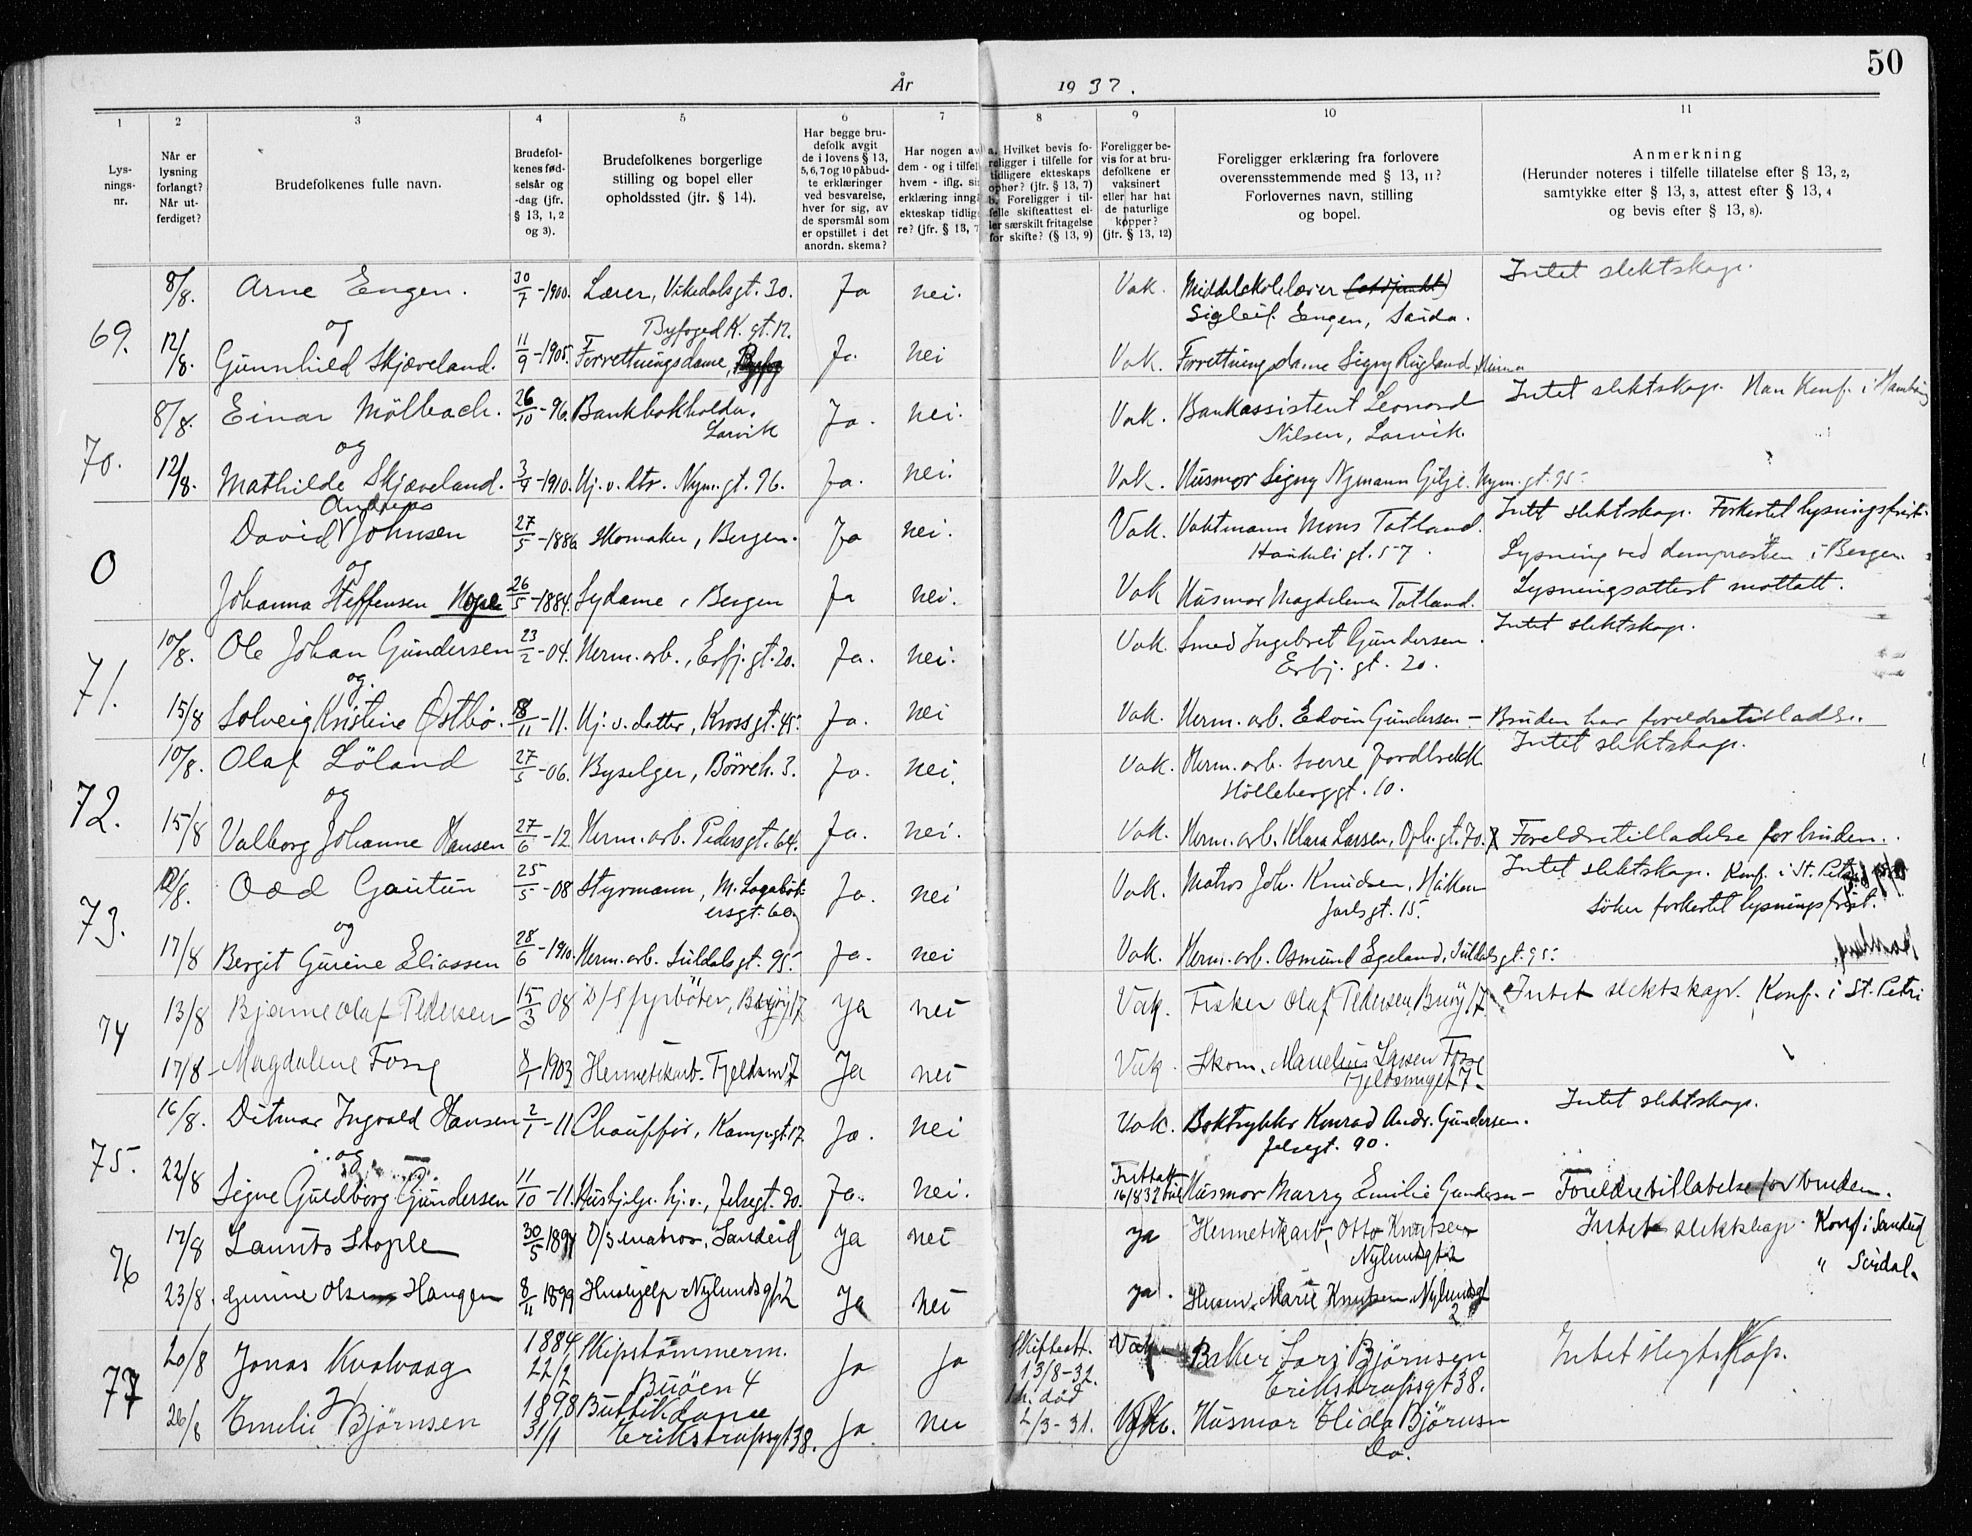 50
År 1932.
1 2 3 4 5 6 7 8 9 10 11
Lys-
nings-
nr.
Når er
lysning
forlangt?
Når ut-
ferdiget?
Brudefolkenes fulle navn.
Brudefol-
kenes fød-
selsår og
-dag (jfr.
§ 13, 1, 2
og 3).
Brudefolkenes borgerlige
stilling og bopel eller
opholdssted (jfr. § 14).
Har begge bru-
defolk avgit
de i lovens § 13,
5, 6, 7 og 10 påbud-
te erklæringer
ved besvarelse,
hver for sig, av
de spørsmål som
er opstillet i det
anordn. skema?
Har nogen av
dem - og i tilfel
hvem - iflg. si
erklæring inng
ekteskap tidlig
re? (jfr. § 13, 7
a. Hvilket bevis fo-
religger i tilfelle for
tidligere ekteskaps
ophør? (jfr. § 13, 7)
b. Foreligger i til-
felle skifteattest el-
ler særskilt fritagelse
for skifte? (§ 13, 9)
Foreligger be-
vis for at bru-
defolkene er
vaksinert
eller har hat
de naturlige
kopper?
(jfr. § 13, 12)
Foreligger erklæring fra forlovere
overensstemmende med § 13, 11?
Forlovernes navn, stilling
og bopel.
Anmerkning
(Herunder noteres i tilfelle tillatelse efter § 13, 2,
samtykke efter § 13, 3, attest efter § 13, 4
og bevis efter § 13, 8).
69. 8/8. Arne Engen. 30/7-1900. Lærer, Vikedalsgt. 30. Ja nei. Vak. Middelskolelærer Intet slektskap.
Sigleif Engen, Sauda.
og Byfoged K. gt. 12.
12/8. Gunnhild Skjæveland. 11/9-1905. Forretningsdame, Ja. nei Vak. Forretningsdame Signy Rugland,
70. 8/8. Einar Mölbach. 26/10-96. Bankbokholder. Ja. nei. Vak. Bankassistent Leonard Intet slektskap. Han Konf. i
Larvik Nilsen, Larvik.
og
12/8. Mathilde Skjæveland. 3/9-1910. Hj. v. dtr. Nym. gt. 76. Ja. nei. Vak. Husmor Signy Nymann Gilje. Nym. gt. 95
Andreas
0 David Johnsen 27/5-1886 Skomaker, Bergen. Ja nei. Vak. Vaktmann Mons Tatland. Intet slektskap. Forkortet lysningsfrist.
Haukeligt. 57. Lysning ved domprosten i Bergen.
og
Johanna Steffensen 26/5-1884. Sydame, Bergen Ja nei. Vak Husmor Magdalena Tatland. Lysningsattest mottatt.
71. 10/8. Ole Johan Gundersen 23/2-04. Herm. arb., Erfj. gt. 20. Ja. nei. Vak. Smed Ingebret Gundersen. Intet slektskap.
Erfj. gt. 20.
og.
15/8 Solveig Kristine Østbö. 18/11-11. Hj. v. datter, Krossgt. 45. Ja. nei Vak. Herm. arb. Edvin Gundersen - Bruden har foreldretilladelse.
72. 10/8. Olaf Löland 27/5-06. Byselger, Börreh. 3. Ja. nei. Vak. Herm. arb. Sverre Intet slektskap.
Hölleberggt. 10.
og
15/8 Valborg Johanne Hansen 27/6-12. Herm. arb. Pedersgt. 64. Ja. nei. Vak. Herm. arb. Klara Larsen, Oph. gt. 70. Foreldretilladelse for bruden.
73. 12/8. Odd Gautun 25/5-08 Styrmann, M. Lagabøt- Ja. nei Vak. Matros Joh. Knudsen, Håkon Intet slektskap. Konf. i St. Petri
ersgt. 60 Jarlsgt. 15. Söker forkortet lysningsfrist.
og
17/8 Bergit Gurine Eliassen 28/6-1910. Herm. arb. Suldalsgt. 95. Ja. nei Vak. Herm. arb. Osmund Egeland, Suldalsgt. 95.
74 13/8 Bjarne Olaf Pedersen 15/3 08 D/S fyrböter, Buöy 17 Ja nei Vak. Fisker Olaf Pedersen, Buöy 17 Intet slektskap. Konf. i St. Petri
17/8 Magdalene Fosse 8/1 1903 Hermetikarb. Fjeldsm. 7 Ja nei Vak. Skom. Manelius Lassen Fosse
Fjeldsmuget 7.
75. 16/8. Ditmar Ingvald Hansen 2/1-11 Chauffør, Kampgt. 17. Ja. nei Vak. Boktrykker Konrad Andr. Gundersen. Intet slektskap.
Jelsegt. 90.
og
22/8 Signe Guldborg Gundersen 11/10-11. Hushjelp. hj. v., Jelsegt. 90. Ja. nei. Fritatt 16/8 32 Husmor Marry Emilie Gundersen - Foreldretillatelse for bruden.
76 17/8 Laurits Stople 30/5 1894 D/S matros, Sandeid Ja nei ja Hermetikarb. Otto Knutsen Intet slektskap. Konf. i Sandeid
Nylundsgt 2 " Sirdal.
23/8. Gurine Olsen Haugen 8/11 1899 Hushjelp Nylundsgt 2 Ja nei ja. Husm. Marie Knutsen Nylundsgt
2
77 20/8 Jonas Kvalvaag 1884, 22/2 Skipstömmerm. Ja Ja Skifteatt. Vak Baker Lars Björnsen Intet slegtskap.
Buöen 4 13/8-32. Erikstrupsgt 38.
26/8 Emelie Björnsen 1898 31/1 Butikdame Ja. nei død 2/3-31. Vak. Husmor Elida Björnsen
Erikstrupsgt 38. Do.